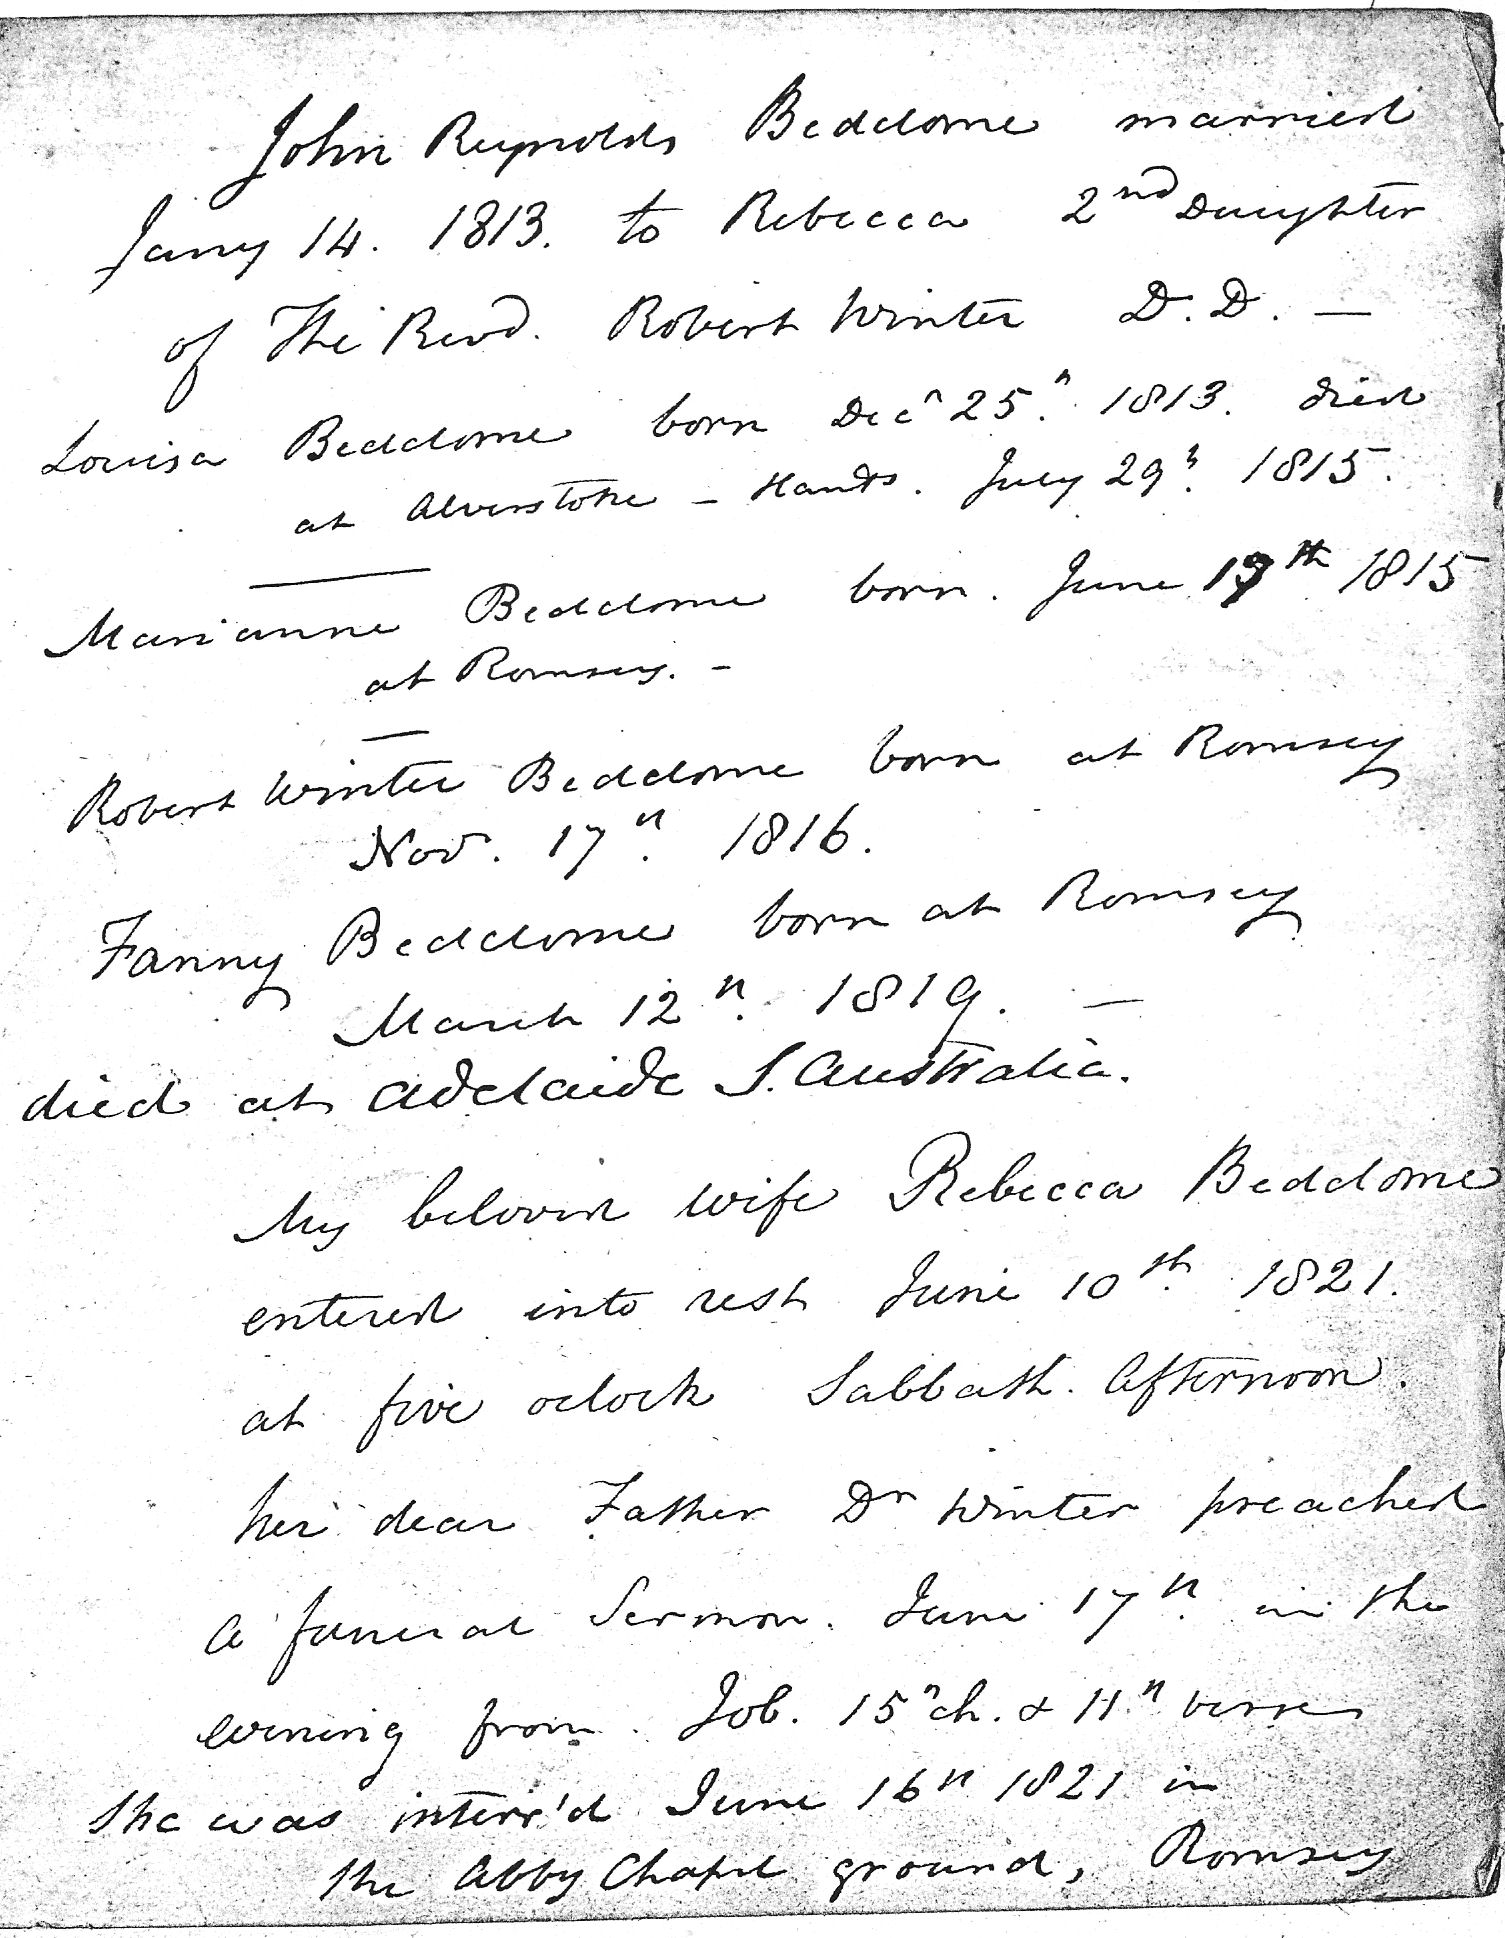 John Reynolds Beddome married
Jany 14. 1813. to Rebecca 2nd Daughter
of The Revd. Robert Winter D.D. —
Louisa Beddome born Decr 25th 1813. died
at Alverstoke – Hants. July 29th 1815.
Marianne Beddome born. June th 1815
at Romsey. –
Robert Winter Beddome born at Romsey
Novr. 17th 1816.
Fanny Beddome born at Romsey
March 12th 1819. —
died at Adelaide S. Australia.
My beloved wife Rebecca Beddome
entered into rest June 10th 1821.
at five oclock Sabbath. Afternoon.
her dear Father Dr Winter preached
a funeral Sermon. June 17th in the
evening from. Job. 15th ch. & 11th verse
She was interr'd June 16th 1821 in
the Abby Chapel ground, Romsey